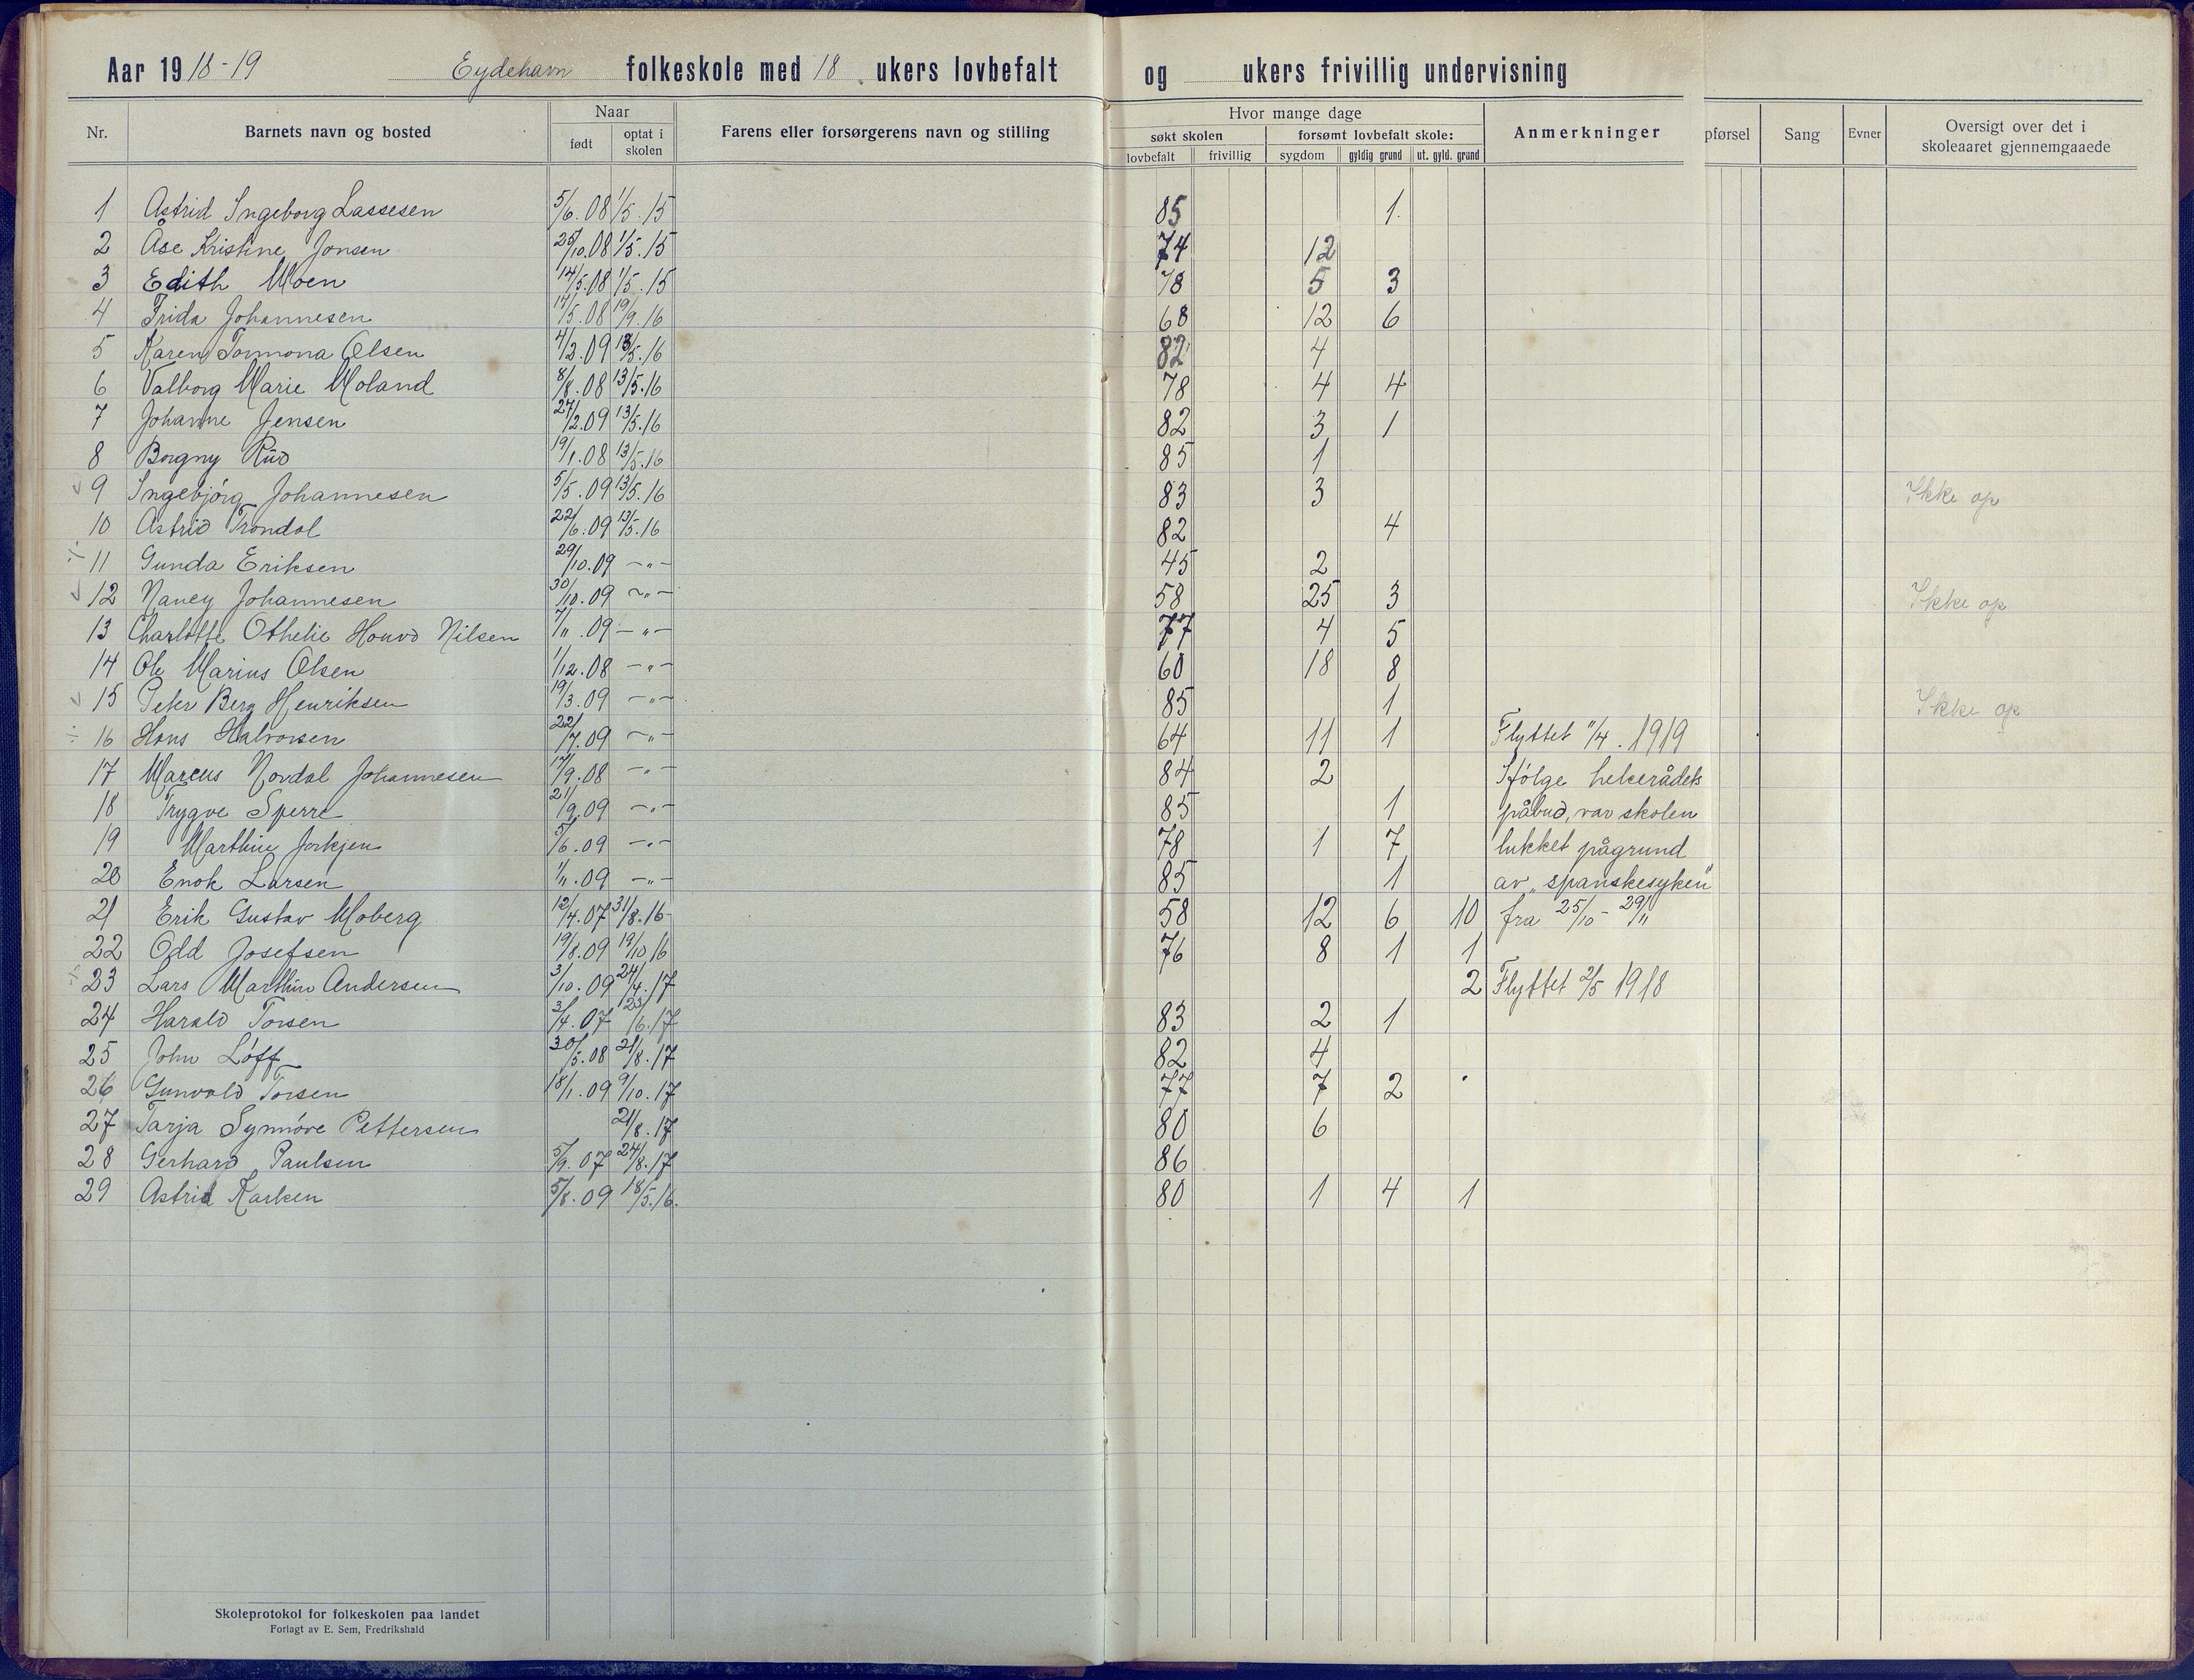 Aar 1918-19 Eydehavn folkeskole med 18 ukers lovbefalt og ukers frivillig undervisning
Nr. Barnets navn og bosted Naar født optat i skolen Farens eller forsørgerens navn og stilling Hvor mange dage søkt skolen lovbefalt frivillig forsømt lovbefalt skole: sygdom gyldig grund ut. gyld. grund Anmerkninger pførsel Sang Evner Oversigt over det i skoleaaret gjennemgaaede
1 Astrid Ingeborg Lassesen 5/6.08 1/5.15 85 1
2 Åse Kristine Jonsen 25/10.08 1/5.15 74 12
3 Edith Moen 14/5.08 1/5.15 78 5 3
4 Frida Johannesen 14/5.08 19/9.16 68 12 6
5 Karen Tormona Olsen 4/2.09 13/5.16 82 4
6 Valborg Marie Moland 8/8.08 13/5.16 78 4 4
7 Johanne Jensen 27/2.09 13/5.16 82 3 1
8 Borgny Rud 19/1.08 13/5.16 85 1
9 Ingebjørg Johannesen 5/5.09 13/5.16 83 3 Ikke op
10 Astrid Trondal 22/6.09 13/5.16 82 4
11 Gunda Eriksen 29/10.09 -"- 45 2
12 Nancy Johannesen 30/10.09 -"- 58 25 3 Ikke op
13 Charlotte Othelie Houvd Nilsen 7/11.09 -"- 77 4 5
14 Ole Marius Olsen 1/12.08 -"- 60 18 8
15 Peter Berg Henriksen 19/3.09 -"- 85 1 Ikke op
16 Hans Halvorsen 22/7.09 -"- 64 11 1 Flyttet 11/4.1919
17 Marcus Nordal Johannesen 17/9.08 -"- 84 2 Ifølge helserådets
18 Trygve Sperre 21/9.09 -"- 85 1 påbud, var skolen
19 Marthin Jorkjen 5/6.09 -"- 78 1 7 lukket pågrund
20 Enok Larsen 1/11.09 -"- 85 1 av „spanskesyken"
21 Erik Gustav Moberg 12/4.07 31/8.16 58 12 6 10 fra 25/10 - 29/11
22 Odd Josefsen 19/8.09 19/10.16 76 8 1 1
23 Lars Marthin Andersen 3/10.09 24/4.17 2 Flyttet 2/5 1918
24 Harald Torsen 3/4.07 23/6.17 83 2 1
25 John Løff 30/5.08 21/8.17 82 4
26 Gunvald Torsen 18/1.09 9/10.17 77 7 2
27 Tarja Synnøve Pettersen 21/8.17 80 6
28 Gerhard Paulsen 5/9.07 24/8.17 86
29 Astrid Karlsen 5/8.09 18/5.16. 80 1 4 1
Skoleprotokol for folkeskolen paa landet
Forlagt av E. Sem, Fredrikshald